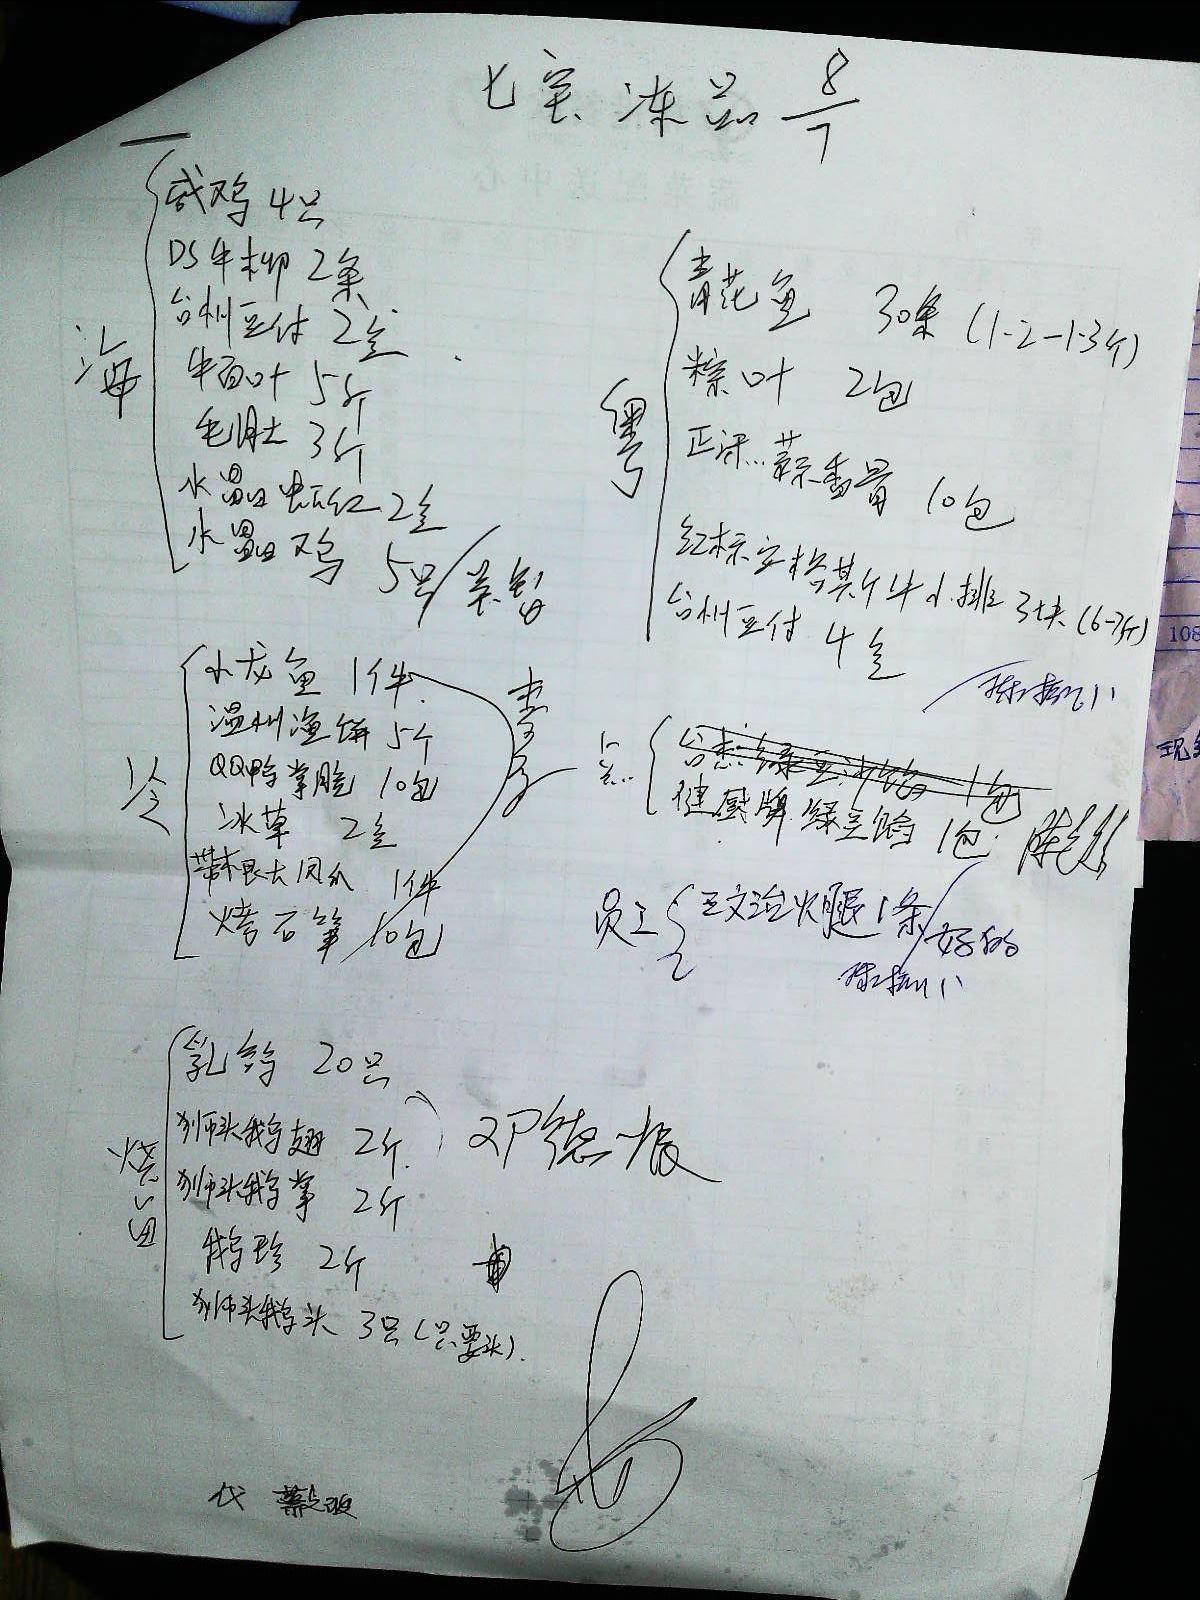 七宝冻品 8/7
海
咸鸡 4只
DS牛柳 2条
台州豆付 2盒
牛百叶 5斤
毛肚 3斤
水晶虾仁 2盒
水晶鸡 5只
冷
小龙鱼 1件
温州渔饼 5个
QQ鸭掌脡 10包
冰草 2盒
带根大凤爪 1件
烤石笋 10包
烧卤
乳鸽 20只
狮头鹅翅 2斤
狮头鹅掌 2斤
鹅珍 2斤
狮头鹅头 3只(只要头)
邓德
代
粤
青花鱼 30条 (1.2-1.3斤)
粽叶 2包
蒜香骨 10包
红标安格其斤牛小排 3块 (6-7斤)
台州豆付 4盒
点
绿豆沙馅 1包
健盛牌绿豆馅 1包
员工
王文治火腿 1条
好的
108
现